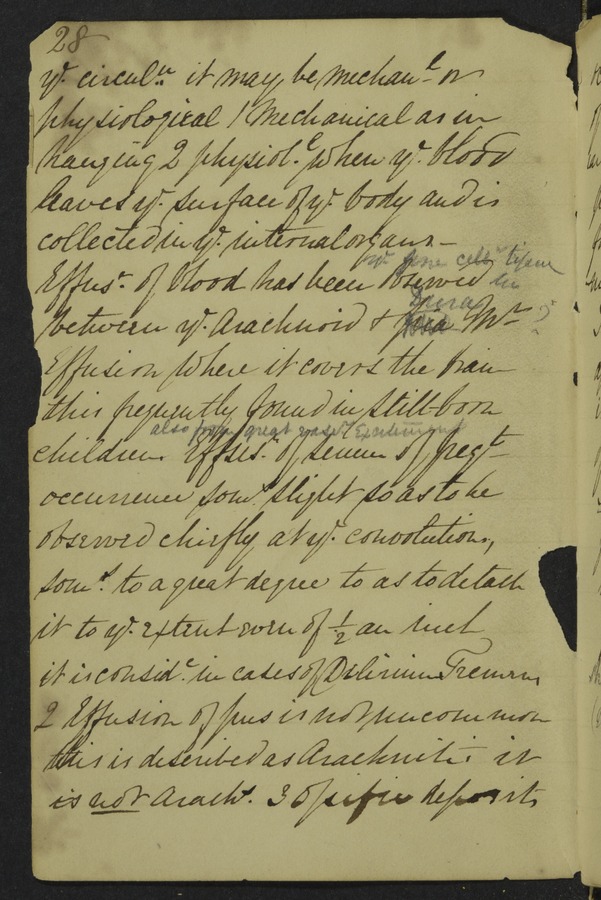 28
yr. circuln. it may be mechanl. or
physiological 1 Mechanical as in
hanging 2 physiol. when yr. blood
leaves yr. surface of yr. body and is
collected in yr. internal organs—
yr. fine cellr. tissue
Effusn. of blood has been observed in
Dura
between yr. Arachnoid & Mtr ?
Effusion where it covers the brain
this frequently found in still-born
also from great vasc. Excitement
children. Effusn. of serum of freqt.
occurrence somt. slight so as to be
observed chiefly at yr. convolutions,
somt. to a great degree to as to detach
it to yr. extent even of ½ an inch
it is considd. in cases of Delirium Tremens
2 Effusion of pus is not uncommon
this is described as Arachnitis it
is not Arach. 3 deposits